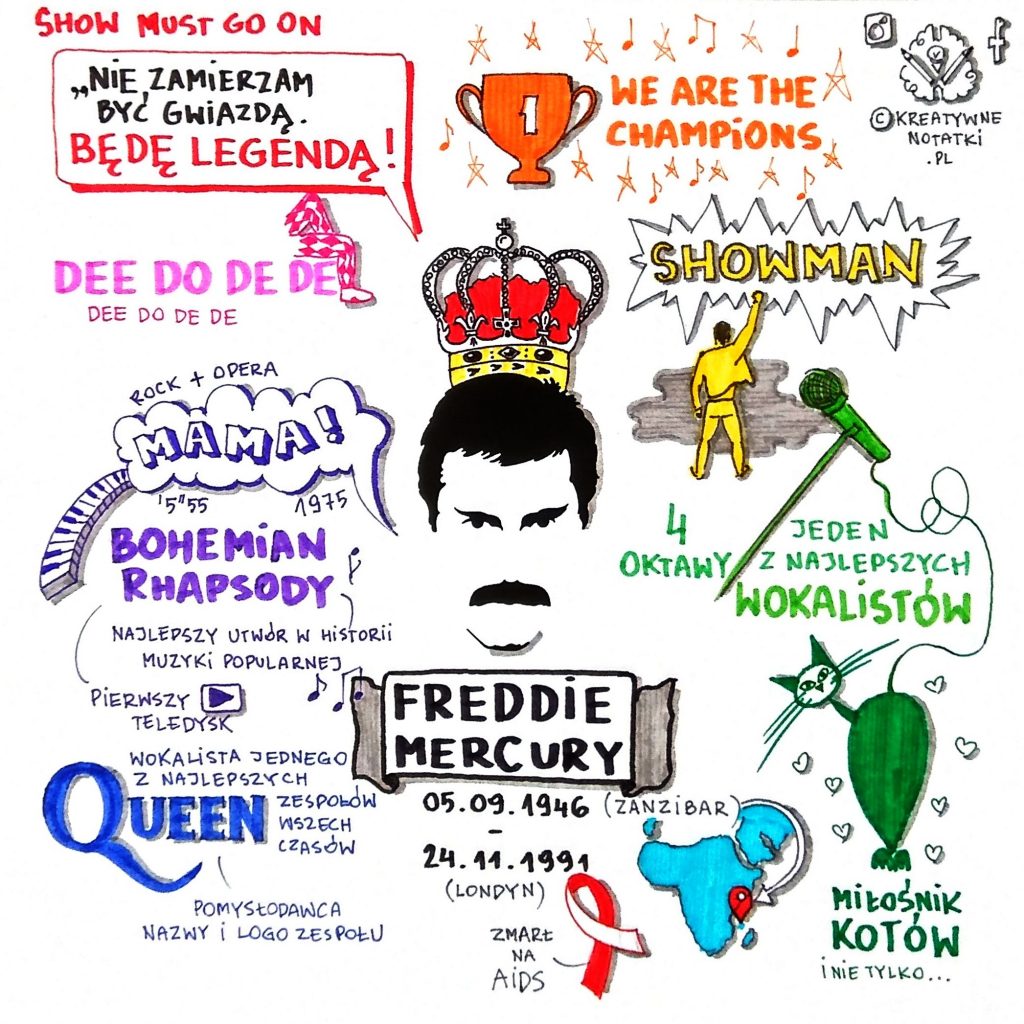 SHOW MUST GO ON
„NIE ZAMIERZAM
BYĆ GWIAZDĄ.
BĘDĘ LEGENDĄ!
1
WE ARE THE
CHAMPIONS
©KREATYWNE
NOTATKI
.PL
DEE DO DE DE
DEE DO DE DE
SHOWMAN
ROCK + OPERA
MAMA!
'5"55 1975
BOHEMIAN
RHAPSODY
NAJLEPSZY UTWÓR W HISTORII
MUZYKI POPULARNEJ
PIERWSZY
TELEDYSK
4
OKTAWY
JEDEN
Z NAJLEPSZYCH
WOKALISTÓW
FREDDIE
MERCURY
05.09.1946 (ZANZIBAR)
-
24.11.1991
(LONDYN)
ZMARŁ
NA
AIDS
WOKALISTA JEDNEGO
Z NAJLEPSZYCH
QUEEN ZESPOŁÓW
WSZECH
CZASÓW
POMYSŁODAWCA
NAZWY I LOGO ZESPOŁU
MIŁOŚNIK
KOTÓW
I NIE TYLKO...